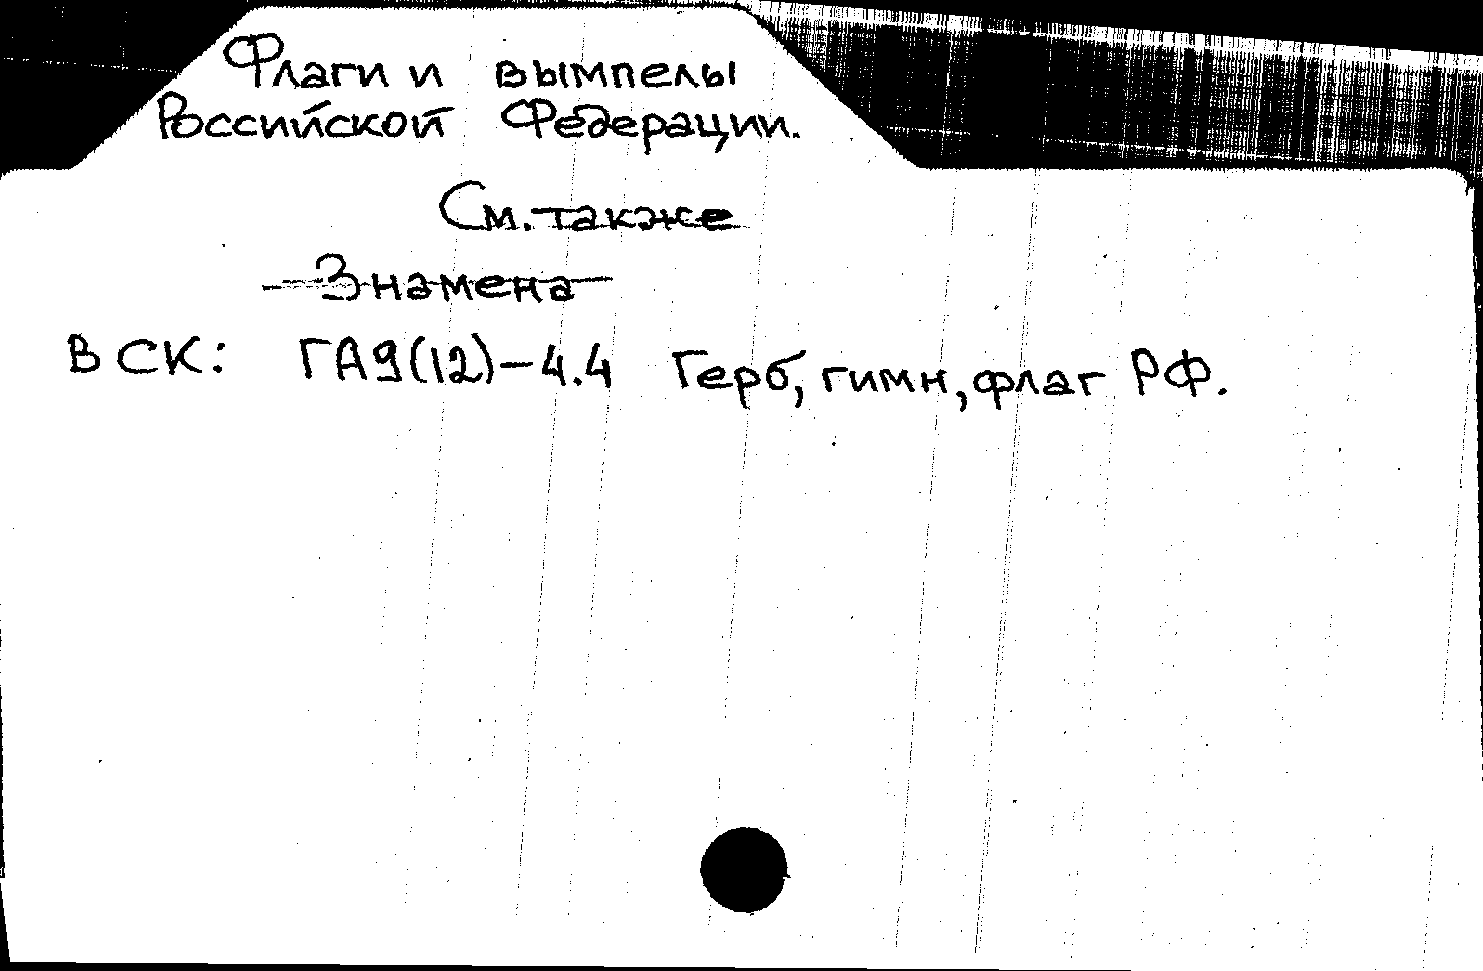 Флаги и вымпелы
Российской Федерации.
См. также
Знамена
В СК: ГА9(12)-4.4 Герб, гимн, флаг РФ.